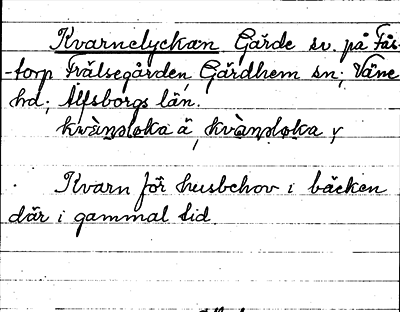 Kvarnelyckan Gärde sv. på Får-
-torp Frälsegården, Gärdhem sn; Väne
hd; Älfsborgs län.
Kvarn för husbehov i bäcken
där i gammal tid.